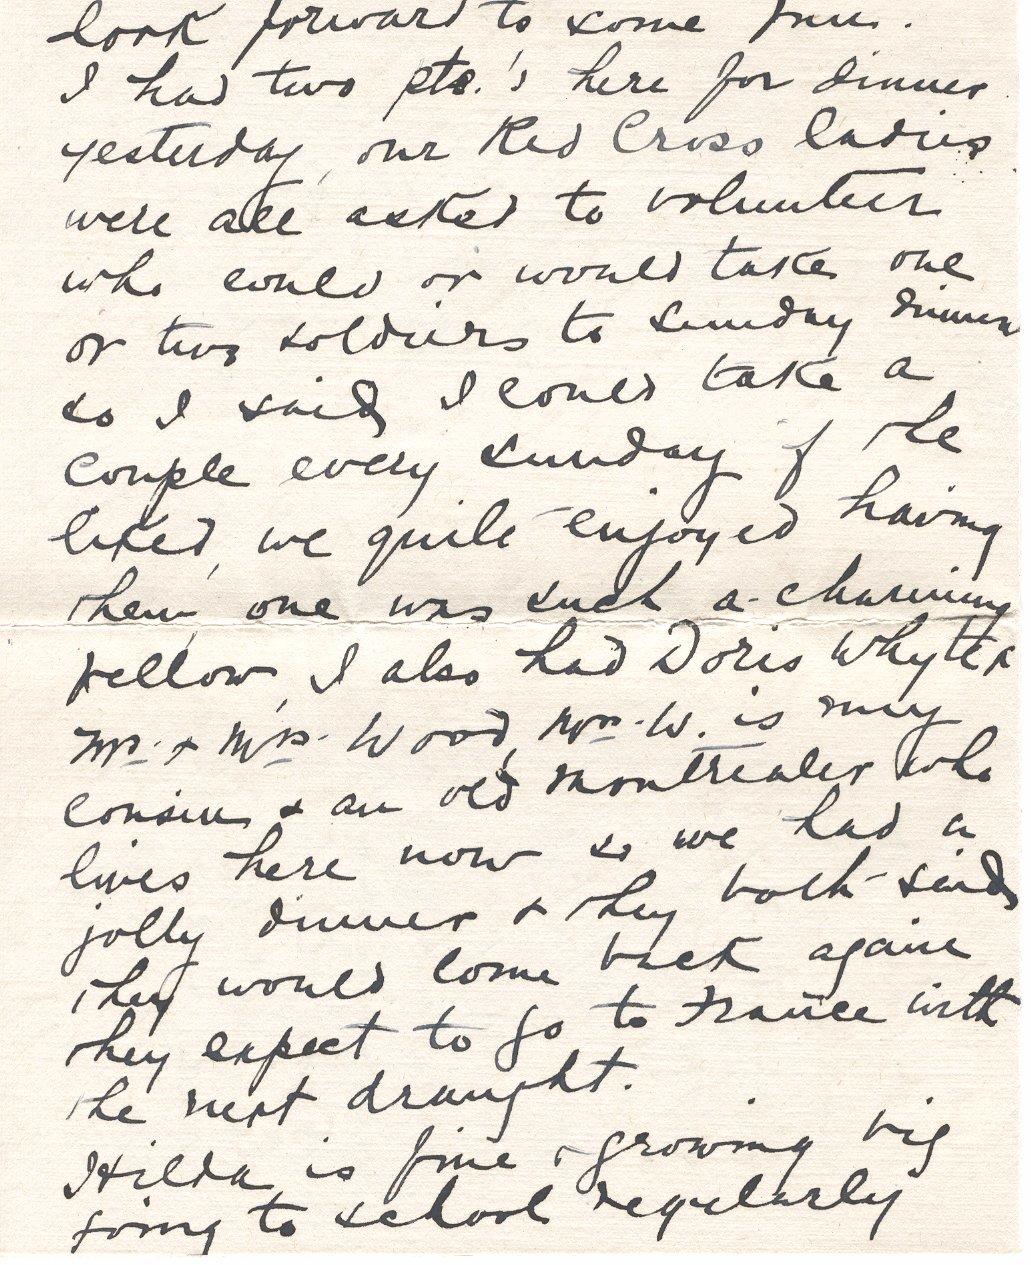 look forward to some fun.
I had two pte.'s here for dinner
yesterday, our Red Cross ladies
were all asked to volunteer
who could or would take one
or two soldiers to Sunday dinner
so I said I could take a
couple every Sunday if he
liked, we quite enjoyed having
them, one was such a charming
fellow, I also had Doris Whyte &
Mr. & Mrs. Wood, Mrs. W. is my
cousin & an old Montrealer who
lives here now so we had a
jolly dinner & they both said
they would come back again
they expect to go to France with
the next draught.
Hilda is fine & growing big
going to school regularly